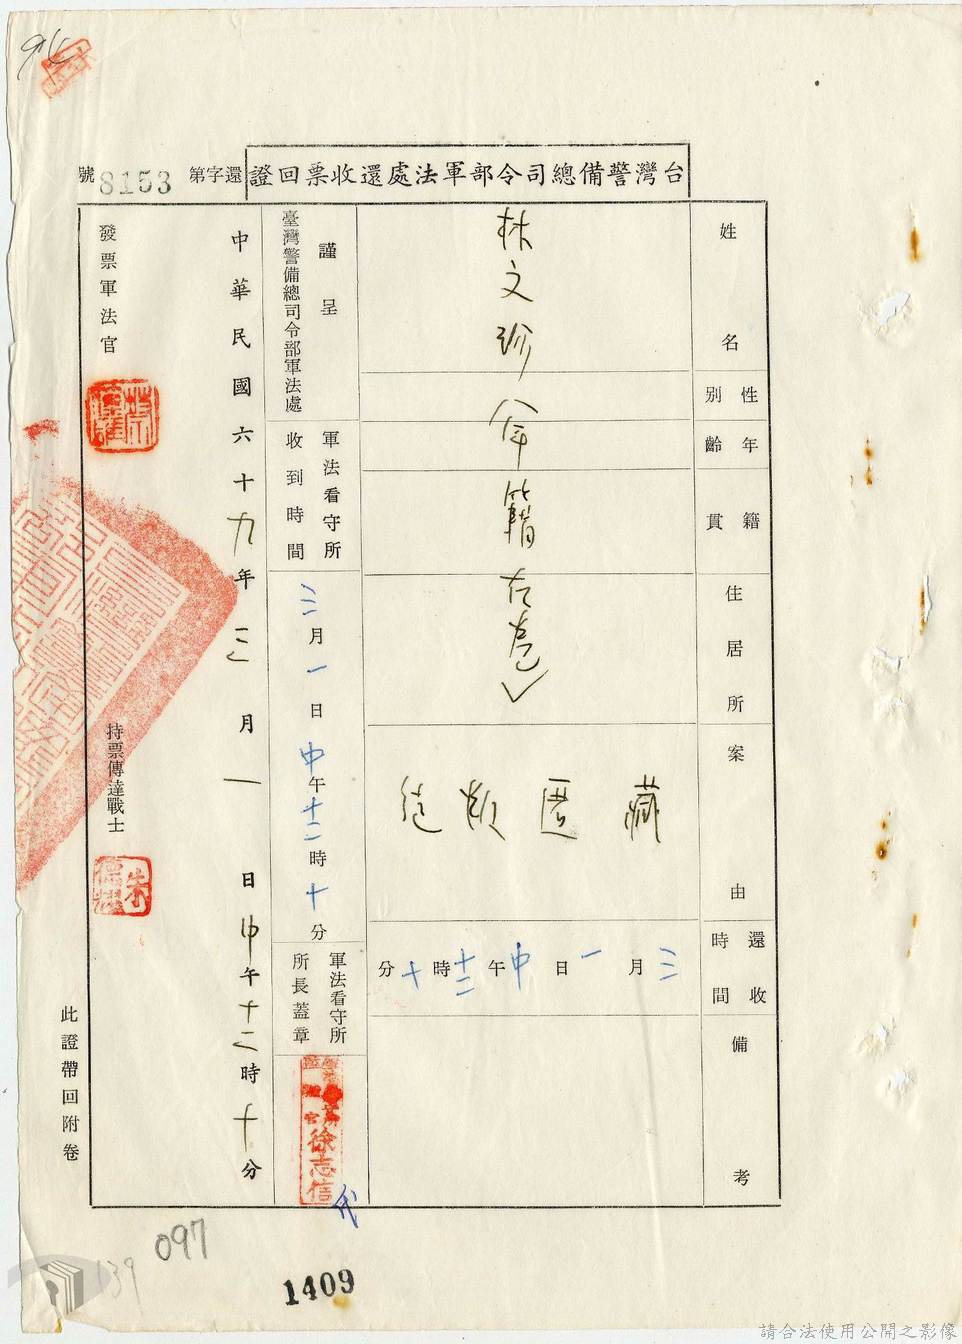 台灣警備總司令部軍法處還收票回證
還字第8153號
姓名
林文珍
性別
年齡
籍貫
年籍在卷
住居所
案由
藏匿叛徒
還收時間
三月一日中午十二時十分
備考
謹呈
臺灣警備總司令部軍法處
軍法看守所
收到時間
三月一日中午十二時十分
軍法看守所
所長蓋章
徐志信
代
中華民國六十九年三月一日中午十二時十分
發票軍法官
持票傳達戰士
此證帶回附卷
097
139
1409
請合法使用公開之影像